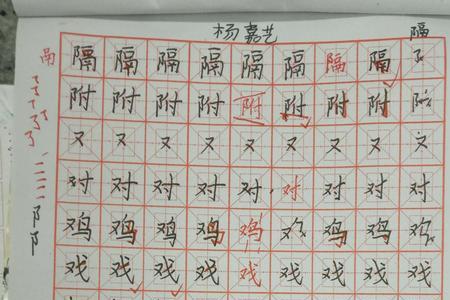 杨嘉艺
隔
隔 隔 隔 隔 隔 隔 隔 隔
附 附 附 附 附 附 附 附 附
又 又 又 又 又 又 又 又 又
对 对 对 对 对 对 对 对 对
鸡 鸡 鸡 鸡 鸡 鸡 鸡 鸡 鸡
戏 戏 戏 戏 戏 戏 戏 戏 戏